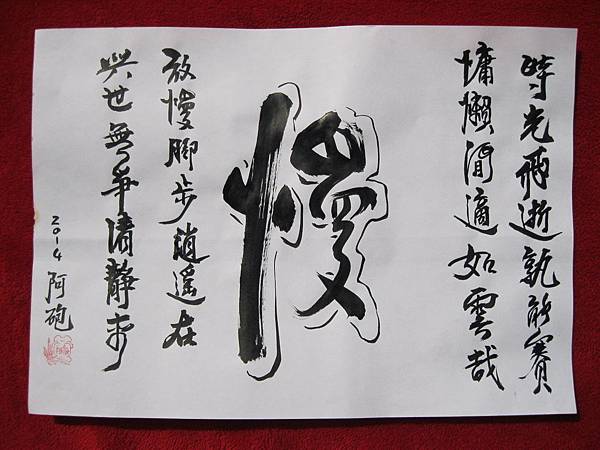 時光飛逝孰能賽
慵懶閒適如雲哉
慢
放慢腳步逍遙在
與世無爭清靜
2014 阿砲